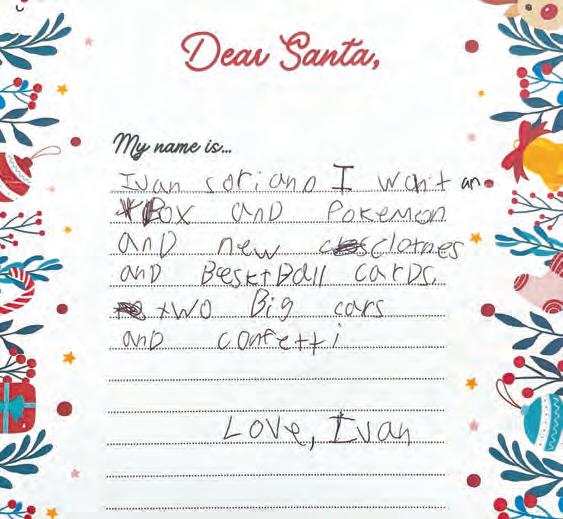 Dear Santa,
My name is...
Ivan Soriano I want an
XBox and Pokemon
and new clothes
and BesktBall cards.
two Big cars
and confetti
Love, Ivan